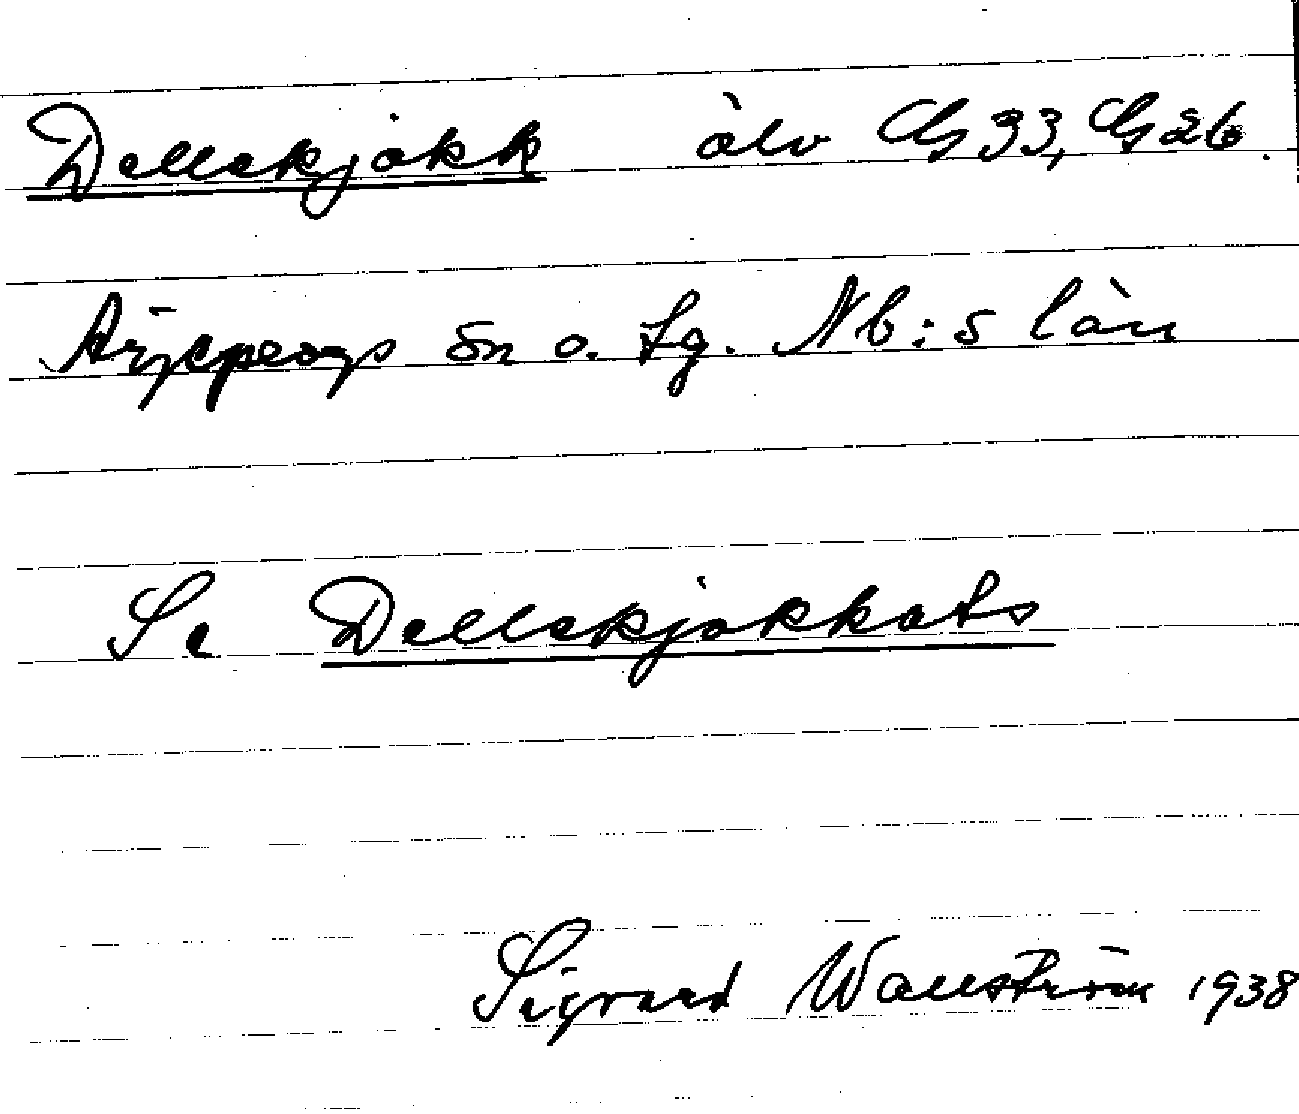 Dellekjåkk älv G33, G26.
Arjeplogs sn o. tg. Nb:s län
Se Dellekjåkkats
Sigvard Wallström 1938